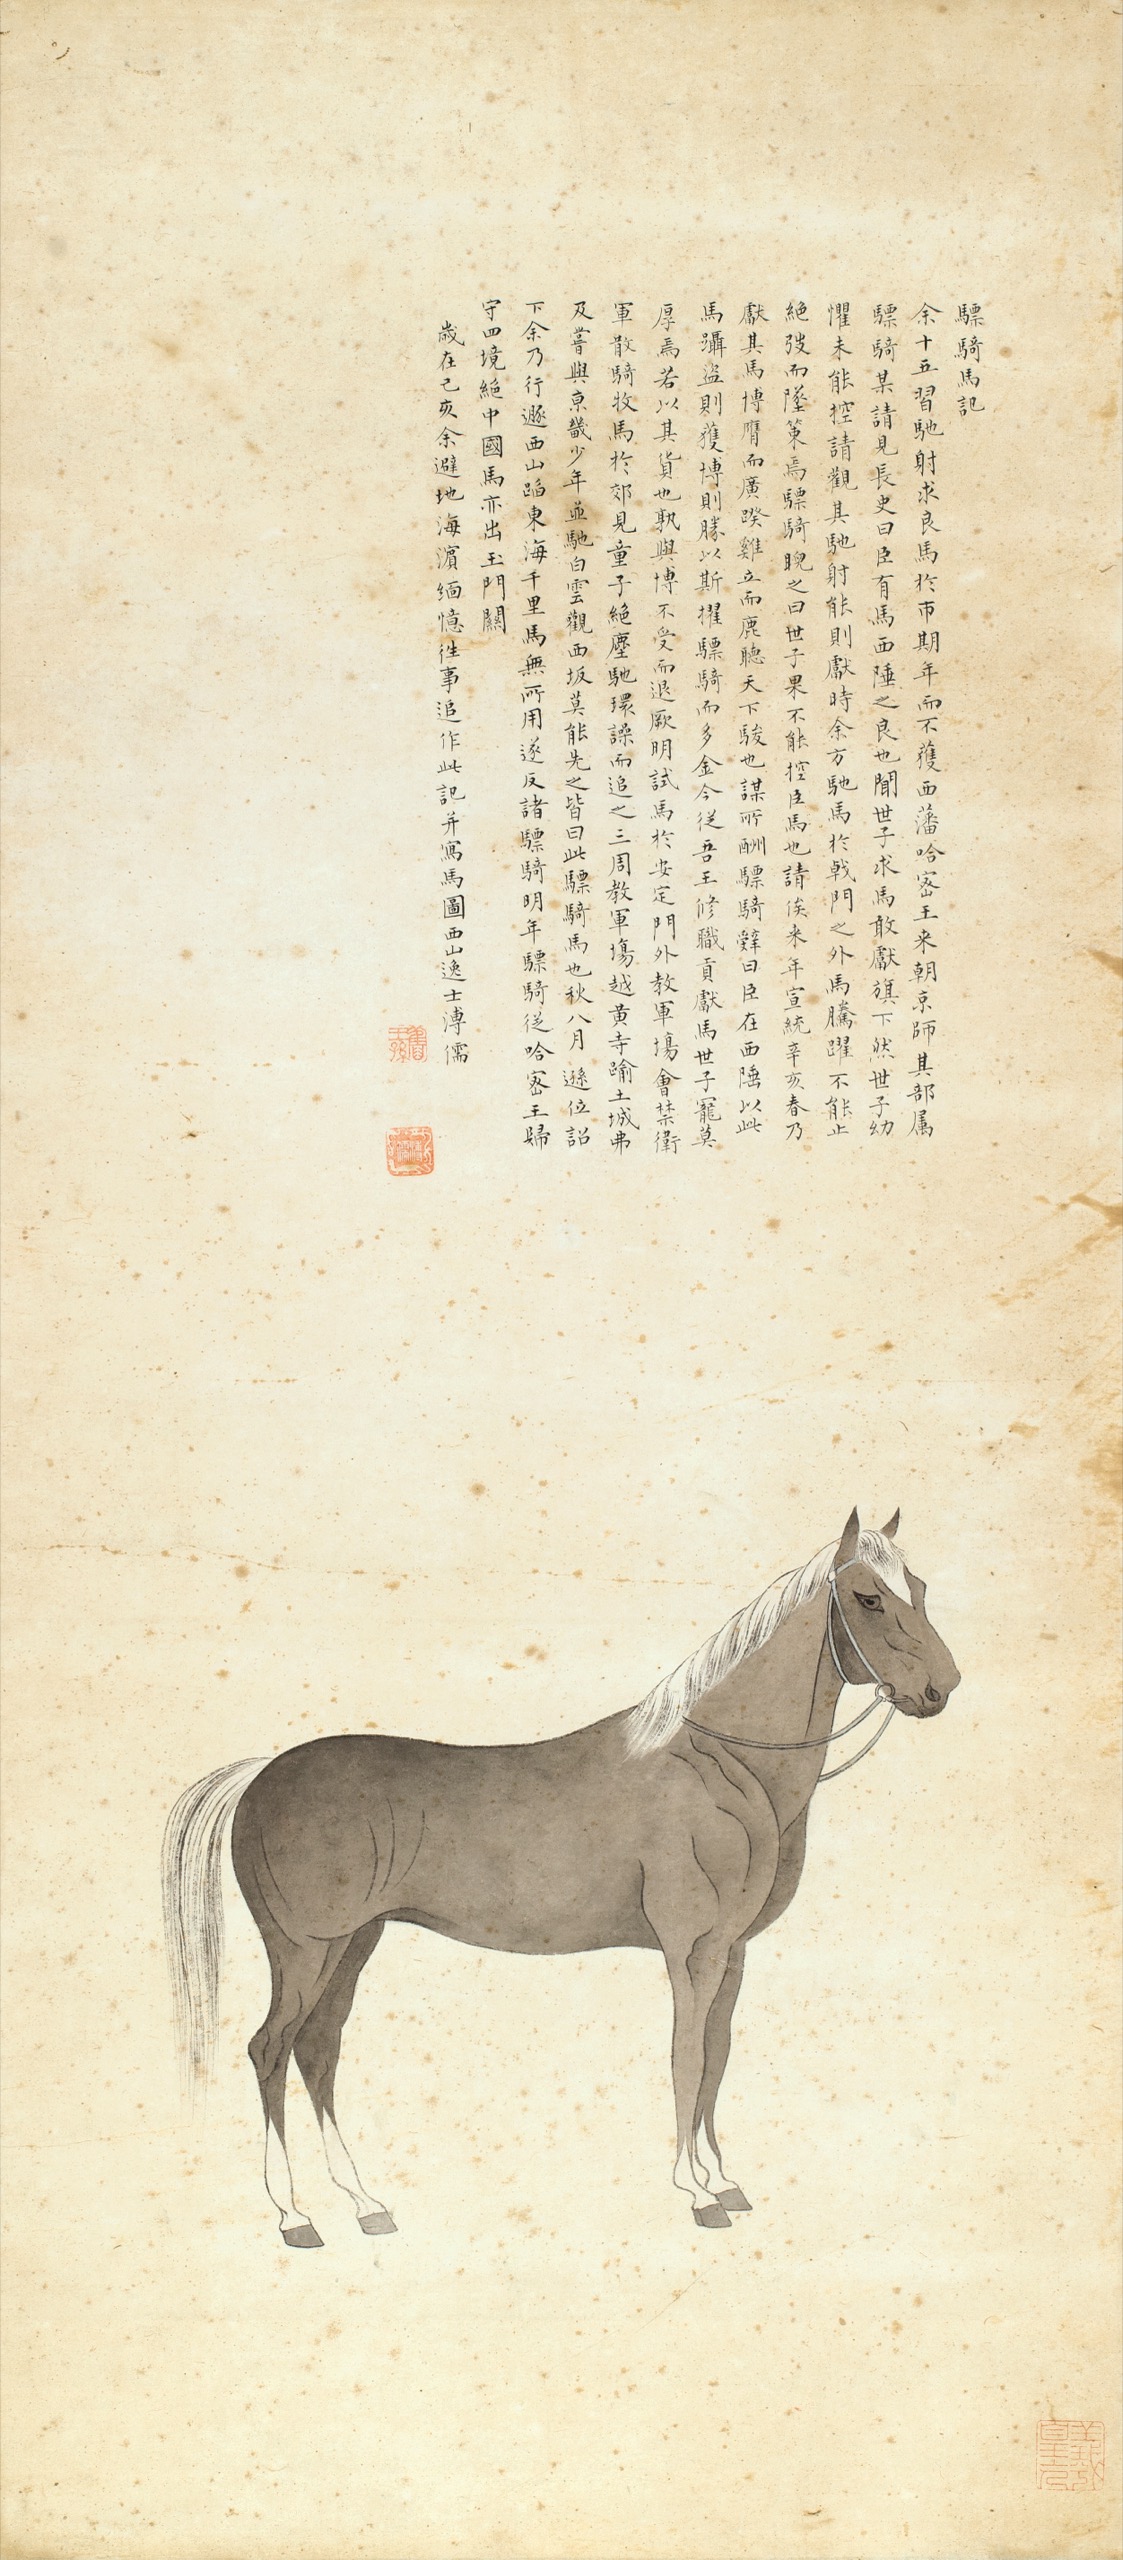 驃騎馬記
余十五習馳射求良馬於市期年而不獲西藩哈密王来朝京師其部属
驃騎某請見長史曰臣有馬西陲之良也聞世子求馬敢獻旗下然世子幼
懼未能控請觀其馳射能則獻時余方馳馬於戟門之外馬騰躍不能止
絶弢而墜策焉驃騎睨之曰世子果不能控臣馬也請俟来年宣統辛亥春乃
獻其馬博膺而廣睽雞立而鹿聽天下駿也謀所酬驃騎辭曰臣在西陲以此
馬躡盗則獲博則勝以斯擢驃騎而多金今従吾王修職貢獻馬世子寵莫
厚焉若以其貨也孰與博不受而退厥明試馬於安定門外教軍場會禁衛
軍散騎牧馬於郊見童子絶塵馳環譟而追之三周教軍場越黄寺踰土城弗
及嘗與京畿少年並馳白雲觀西坂莫能先之皆曰此驃騎馬也秋八月遜位詔
下余乃行遯西山蹈東海千里馬無所用遂反諸驃騎明年驃騎従哈密王歸
守四境絶中國馬亦出玉門關
歳在己亥余避地海濵緬憶往事追作此記并寫馬圖西山逸士溥儒
舊王孫
羲皇上人